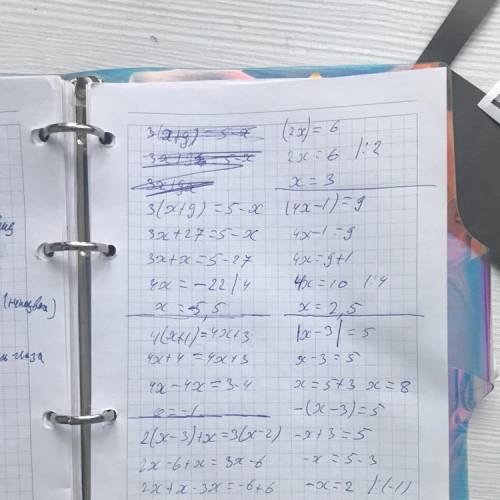 3(x+9)=5-x
3(x+9)=5-x
3x+27=5-x
3x+x=5-27
4x=-22|4
x=-5,5
4(x+1)=4x+3
4x+4=4x+3
4x-4x=3-4
x=-1
2(x-3)+x=3(x-2)
2x-6+x=3x-6
2x+x-3x=-6+6
(2x)=6
2x=6 |:2
x=3
(4x-1)=9
4x-1=9
4x=9+1
4x=10 |:4
x=2,5
|x-3|=5
x-3=5
x=5+3 x=8
-(x-3)=5
-x+3=5
-x=5-3
-x=2 |:(-1)